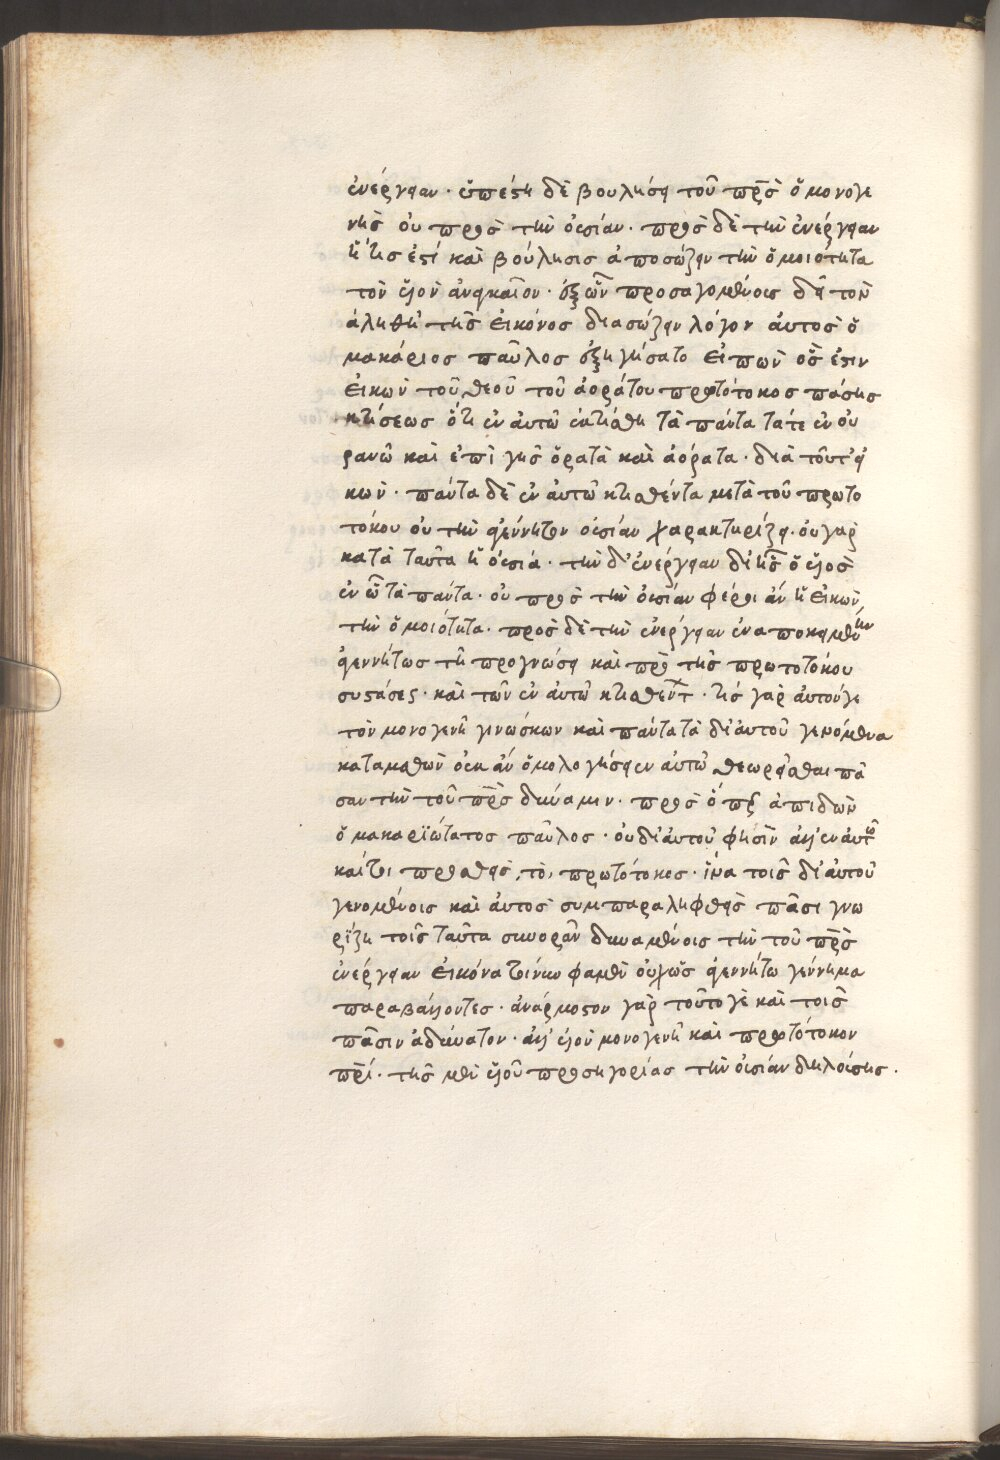 ἐνέργειαν · ὑπέστη δὲ βουλήσει τοῦ πρ̅ς̅ ὁ μονογε
νὴς οὐ πρὸς τὴν οὐσίαν · πρὸς δὲ τὴν ἐνέργειαν
ἥτις ἐστὶ καὶ βούλησις ἀποσώζειν τὴν ὁμοιότητα
τὸν υἱὸν ἀναγκαῖον · ἐξ ὧν προσαγομένοις δεῖ τὸν
ἀληθῆ τῆς εἰκόνος διασώζειν λόγον αὐτὸς ὁ
μακάριος παῦλος ἐξηγήσατο εἰπὼν ὅς ἐστιν
εἰκὼν τοῦ θεοῦ τοῦ ἀοράτου πρωτότοκος πάσης
κτίσεως ὅτι ἐν αὐτῶ ἐκτίσθη τὰ πάντα τά τε ἐν οὐ
ρανῶ καὶ ἐπὶ γῆς ὁρατὰ καὶ ἀόρατα · διὰ τοῦτ' εἰ
κὼν · πάντα δὲ ἐν αὐτῶ κτισθέντα μετὰ τοῦ πρωτο
τόκου οὐ τὴν ἀγέννητον οὐσίαν χαρακτηρίζει · οὐ γὰρ
κατὰ ταῦτα ἡ οὐσία · τὴν δ' ἐνέργειαν δι' ἧς ὁ υἱὸς
ἐν ὧ τὰ πάντα · οὐ πρὸς τὴν οὐσίαν φέροι ἂν ἡ εἰκὼν
τὴν ὁμοιότητα · πρὸς δὲ τὴν ἐνέργειαν ἐναποκειμένην
ἀγεννήτως τῆ προγνώσει καὶ πρὸ τῆς πρωτοτόκου
συστάσεως · καὶ τῶν ἐν αὐτῶ κτισθέντ · τίς γὰρ αὐτὸν γε
τὸν μονογενῆ γινώσκων καὶ πάντα τὰ δι' αὐτοῦ γενόμενα
καταμαθὼν οὐκ ἂν ὁμολογήσειεν αὐτῶ θεωρεῖσθαι πᾶ
σαν τὴν τοῦ πρ̅ς̅ δύναμιν · πρὸς ὅπερ ἀπιδὼν
ὁ μακαριώτατος παῦλος · οὐ δι' αὐτοῦ φησὶν ἀλλ' ἐν αὐτῶ
καίτοι προσθεὶς, τὸ, πρωτότοκος · ἵνα τοῖς δι' αὐτοῦ
γενομένοις καὶ αὐτὸς συμπαραληφθεὶς πᾶσι γνω
ρίζη τοῖς ταῦτα συνορᾶν δυναμένοις τὴν τοῦ πρ̅ς̅
ἐνέργειαν εἰκόνα τοίνυν φαμὲν οὐχ ὡς ἀγεννήτω γέννημα
παραβάλλοντες · ἀνάρμοστον γὰρ τοῦτό γε καὶ τοῖς
πᾶσιν ἀδύνατον · ἀλλ' υἱὸν μονογενῆ καὶ πρωτότοκον
πρ̅ί̅ · τῆς μὲν υἱοῦ προσηγορίας τὴν οὐσίαν δηλούσης ·